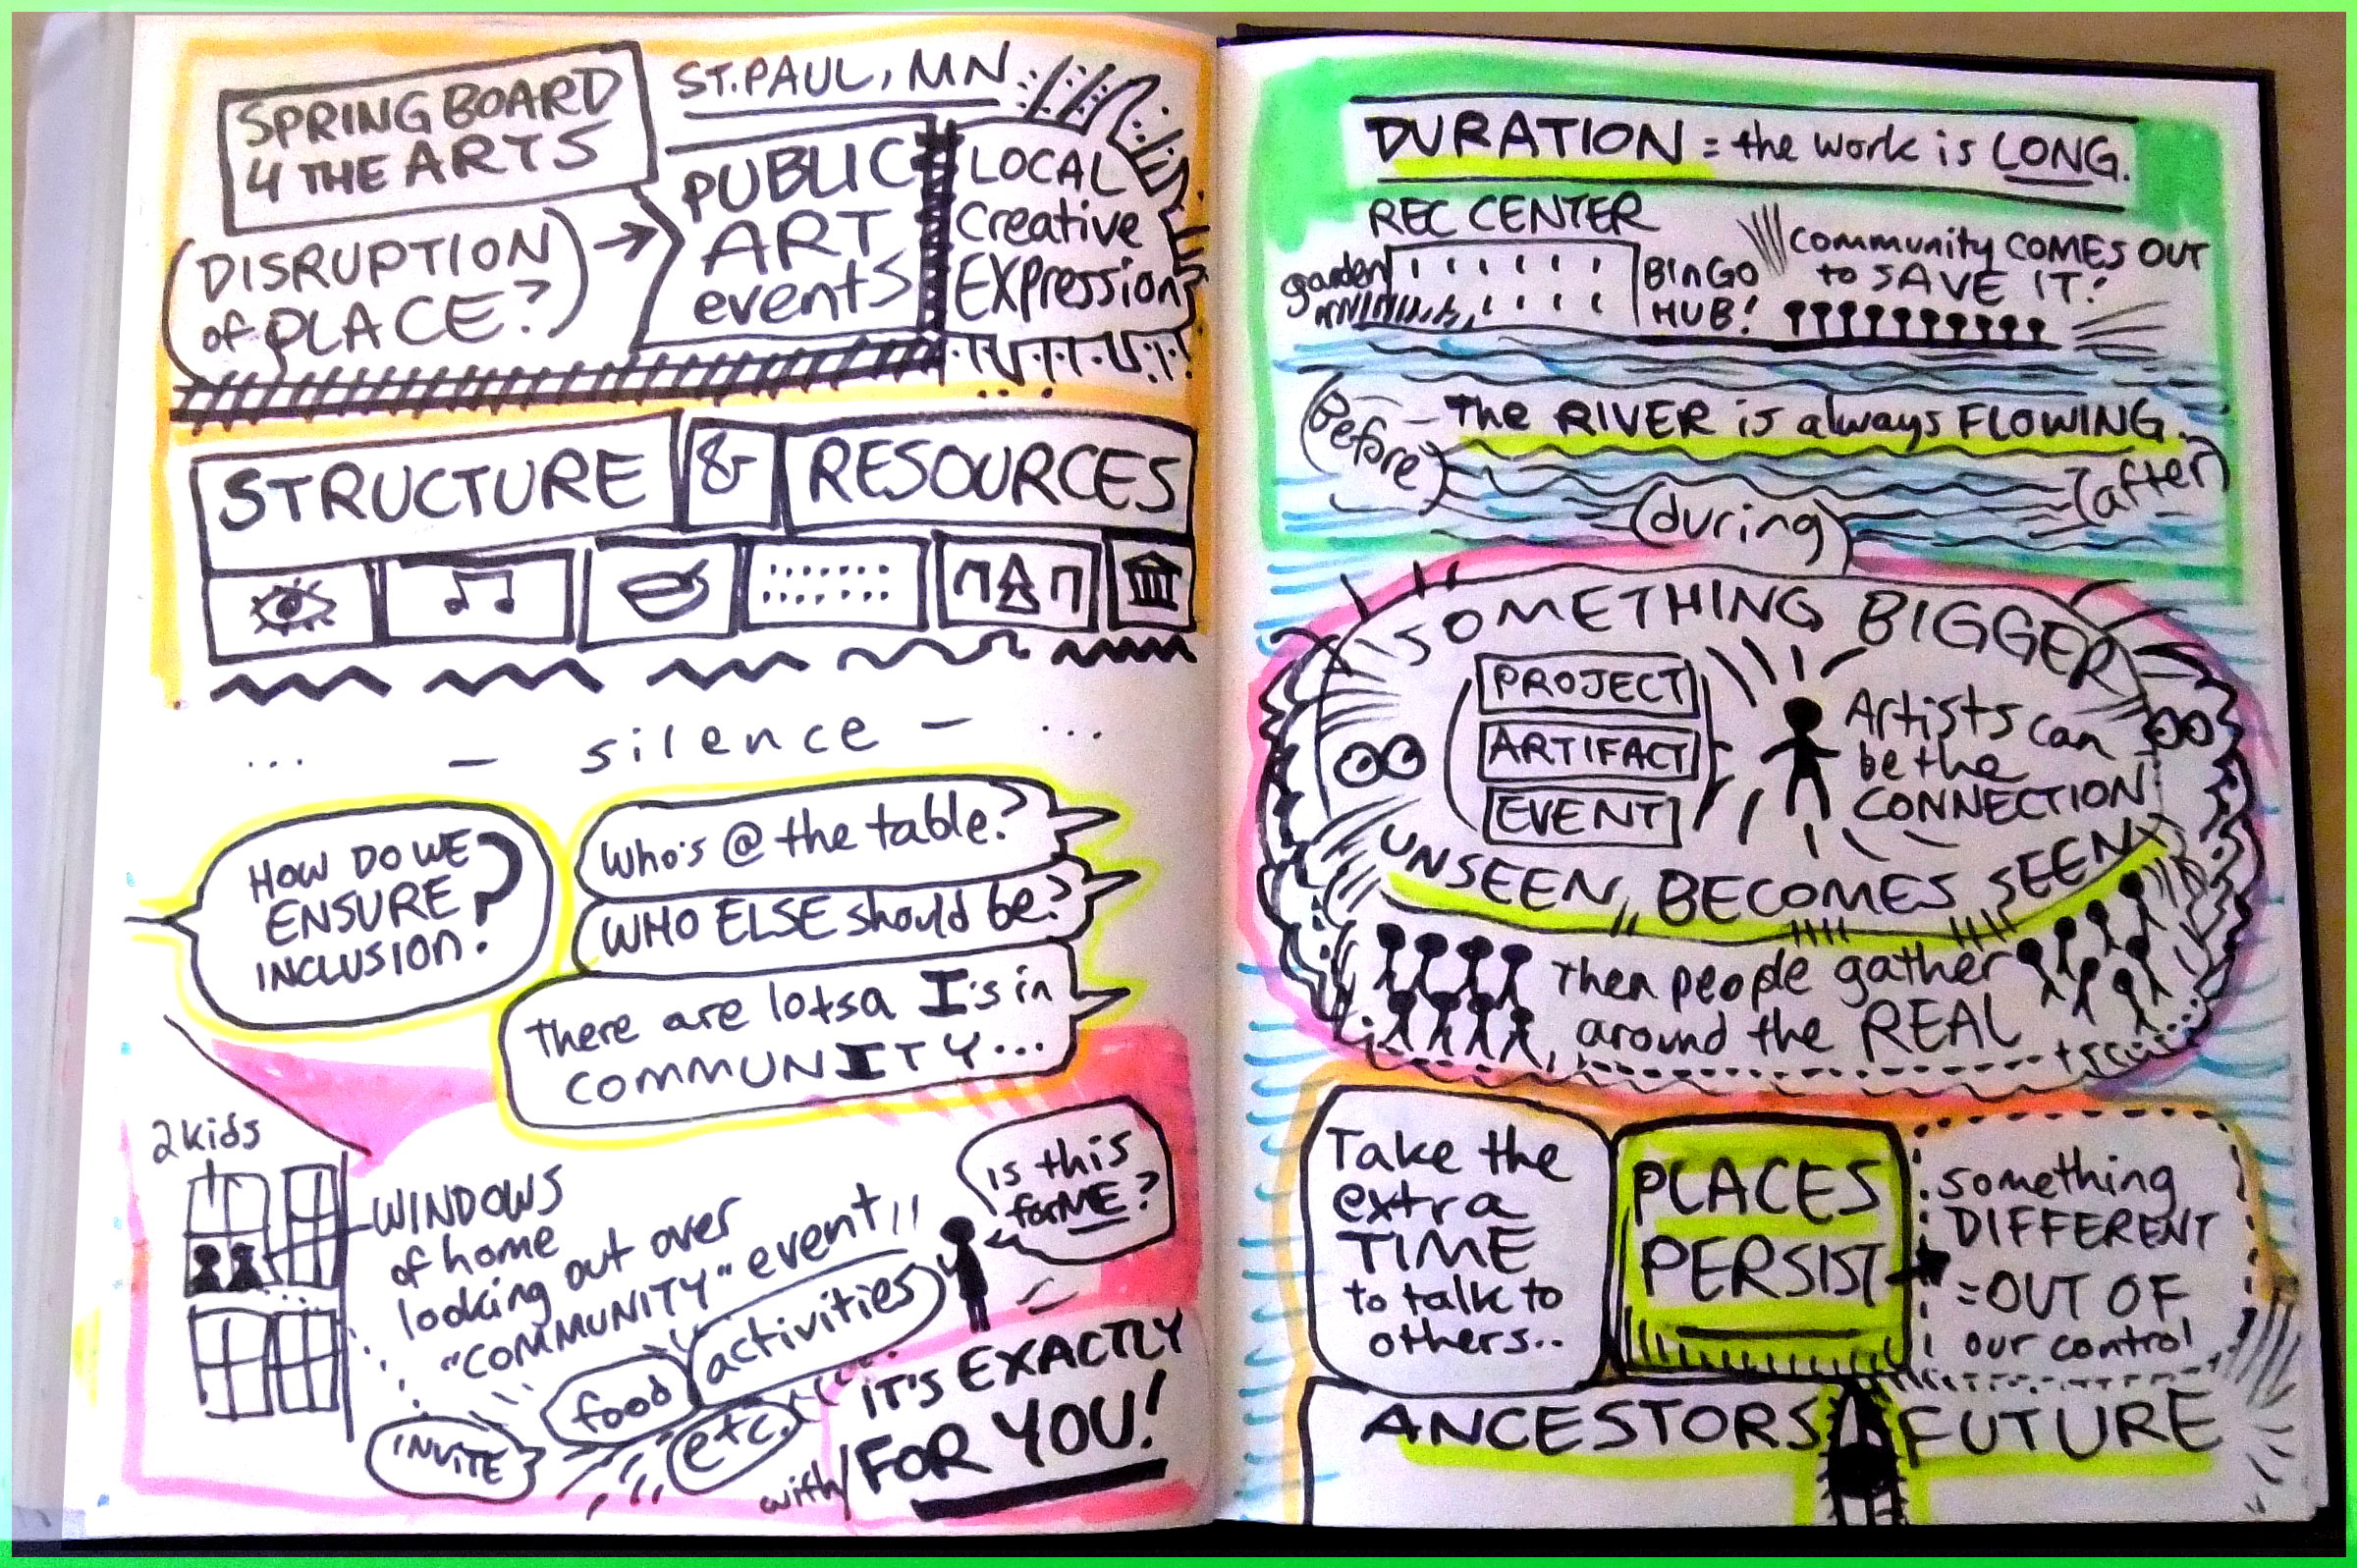 SPRING BOARD
4 THE ARTS
ST. PAUL, MN
(DISRUPTION
of PLACE?)
PUBLIC
ART
events
LOCAL
Creative
EXPression
STRUCTURE & RESOURCES
... — silence — ...
HOW DO WE
ENSURE
INCLUSION?
Who's @ the table?
WHO ELSE should be?
There are lotsa I's in
COMMUNITY...
2 kids
WINDOWS
of home
looking out over
"COMMUNITY" event!!
is this
for ME?
INVITE
food
activities
etc.
IT'S EXACTLY
with/FOR YOU!
DURATION = the work is LONG.
REC CENTER
garden
BINGO
HUB!
Community COMES OUT
to SAVE IT!
(Before)
The RIVER is always FLOWING.
(during)
(after)
SOMETHING BIGGER
PROJECT
ARTIFACT
EVENT
Artists can
be the
CONNECTION
UNSEEN BECOMES SEEN
Then people gather
around the REAL
Take the
extra
TIME
to talk to
others..
PLACES
PERSIST
something
DIFFERENT
=OUT OF
our control
ANCESTORS
FUTURE